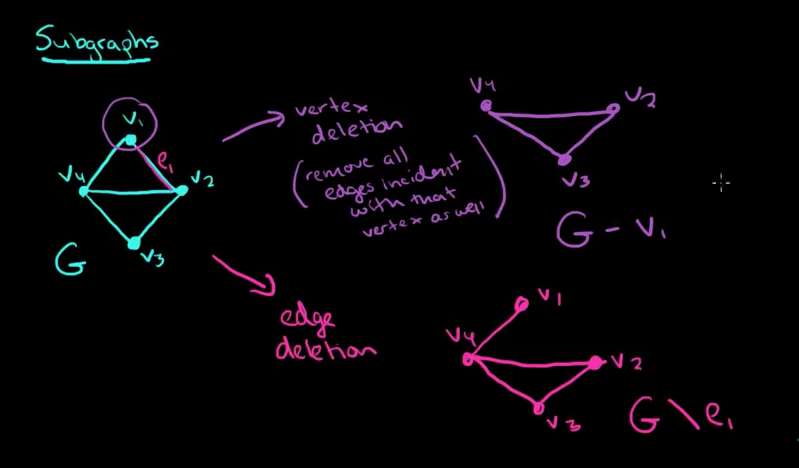 Subgraphs
v₁
e₁
v₄
v₂
v₃
G
vertex
deletion
(remove all
edges incident
with that
vertex as well)
v₄
v₂
v₃
G - v₁
edge
deletion
v₁
v₄
v₂
v₃
G \ e₁